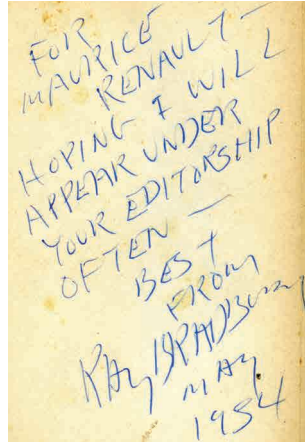 FOR
MAURICE
RENAULT—
HOPING I WILL
APPEAR UNDER
YOUR EDITORSHIP
OFTEN —
BEST
FROM
RAY BRADBURY
MAY
1954